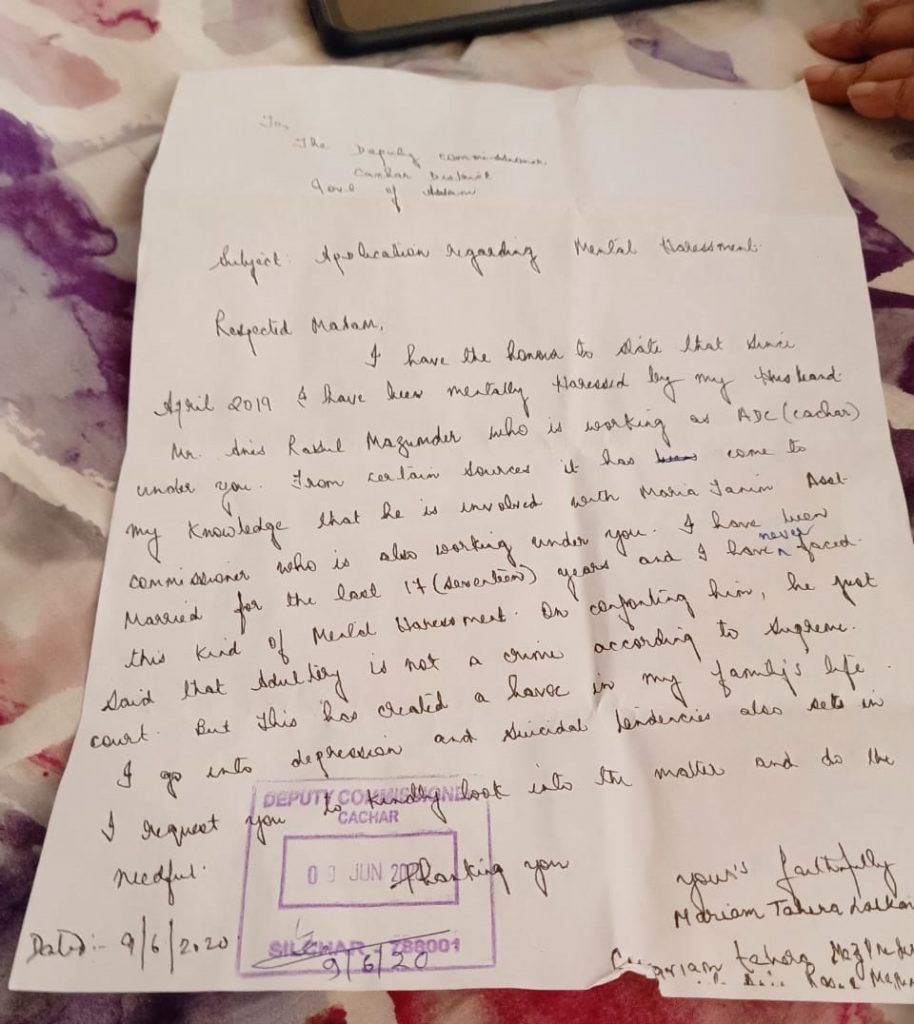 To,
The Deputy commissioner
Cachar District
Govt of Assam
Subject: Application regarding Mental Haressment.
Respected Madam,
I have the honour to state that since
April 2019 I have been mentally Haressed by my Husband
Mr. Anis Rasul Mazumder who is working as ADC (cachar)
under you. From certain sources it has been come to
my Knowledge that he is involved with Maria Tanim Asst
commissioner who is also working under you. I have been
Married for the last 17 (seventeen) years and I have never faced.
this kind of Mental Haressment. On confonting him, he just
said that Adultery is not a crime according to Supreme.
court. But this has created a havoc in my family's life.
I go into depression and suicidal tendencies also sets in
I request you to kindly look into the matter and do the
needful.
Thanking you
your's faithfully
Mariam Tahera
Dated:- 9/6/2020
DEPUTY COMMISSIONER
CACHAR
09 JUN 20
SILCHAR 788001
9/6/20
Mariam tahera